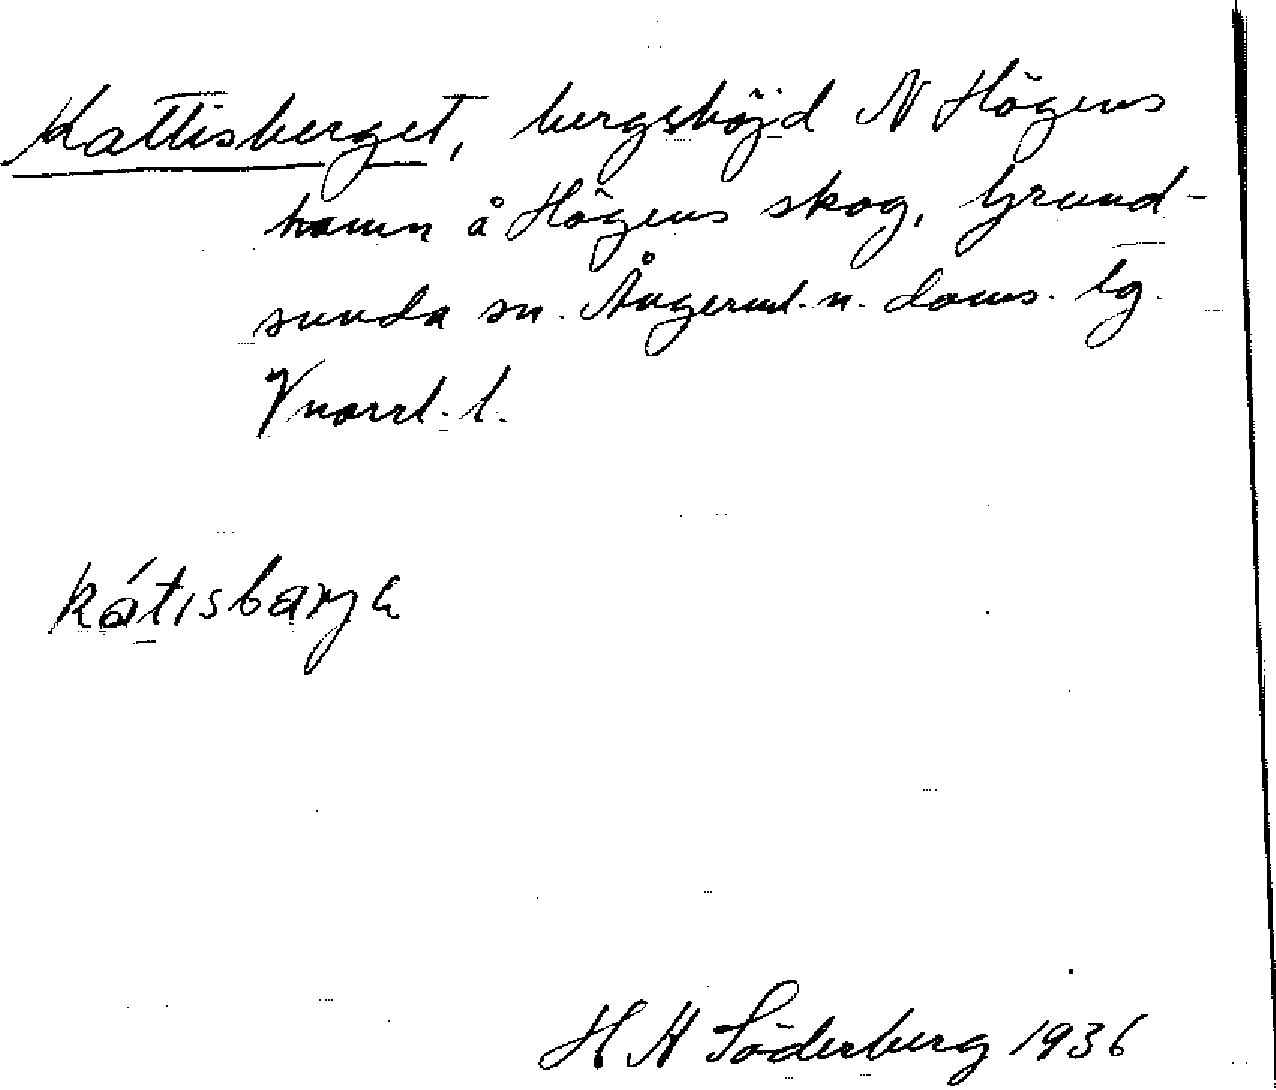 Kattisberget, bergshöjd N Högens
hamn å Högens skog, Grund-
sunda sn. Ångerml. n. doms. lg.
Vnorrl. l.
kátisbarjɛ
H H Söderberg 1936